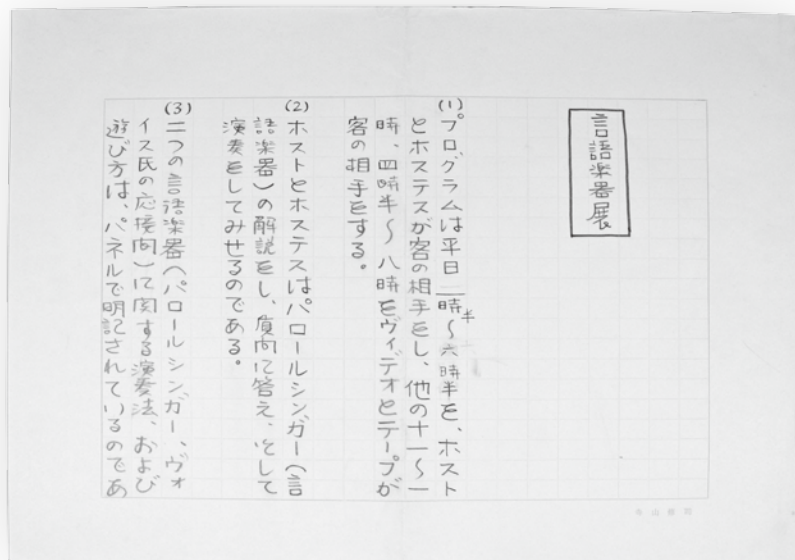 言語楽器展
(1)プログラムは平日一時半〜六時半を、ホスト
とホステスが客の相手をし、他の十一〜一
時、四時半〜八時をヴィデオとテープが
客の相手をする。
(2)ホストとホステスはパロールシンガー(言
語楽器)の解説をし、質问に答え、そして
演奏をしてみせるのである。
(3)二つの言語楽器(パロールシンガー、ヴォ
イス氏の応接间)に関する演奏法、および
遊び方は、パネルで明記されているのであ
寺山修司